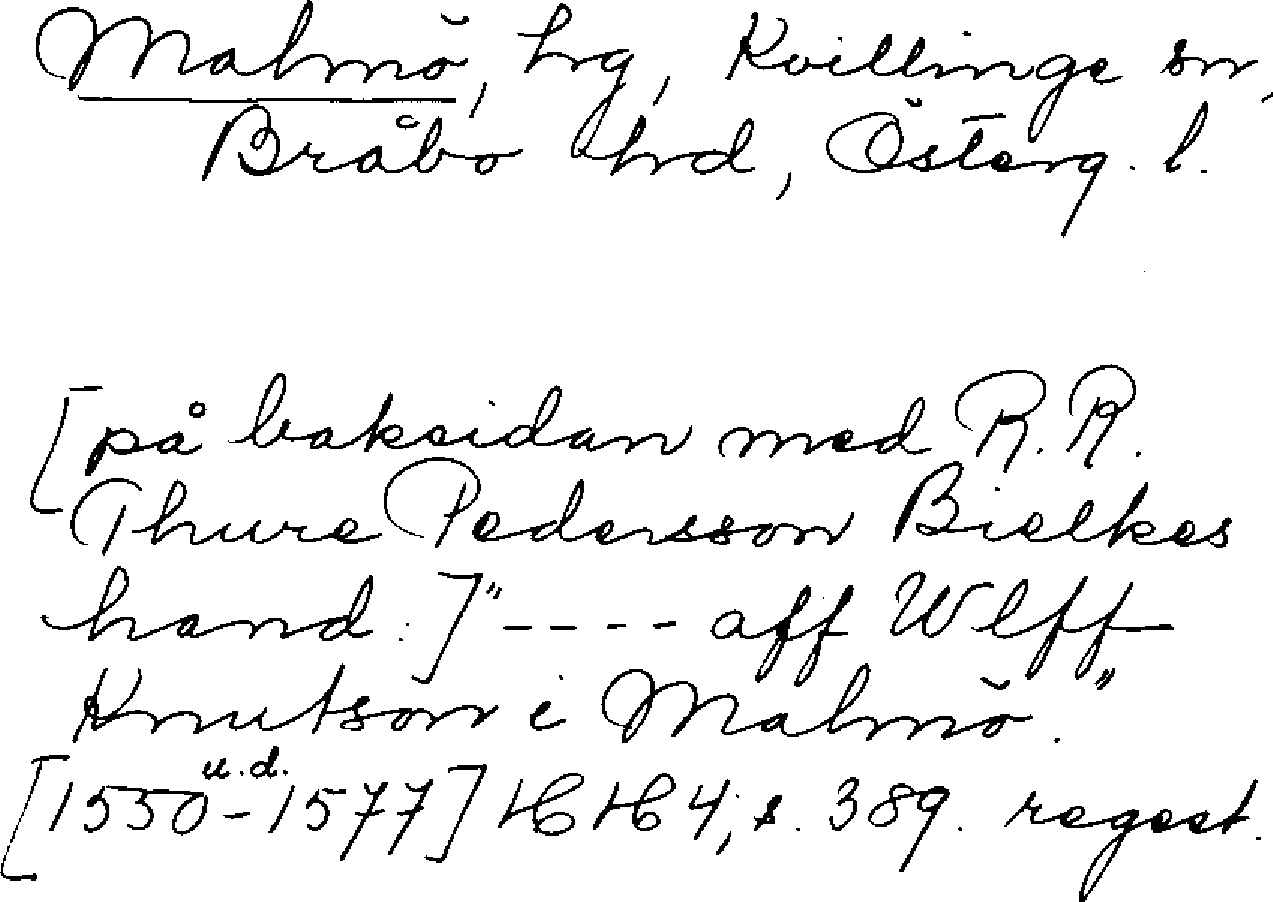 Malmö, hg, Kvillinge sn,
Bråbo hrd, Österg. l.
[på baksidan med R. R.
Thure Pedersson Bielkes
hand:]"---- aff Wlff
Knutson i Malmö."
[1550-1577] u.d. HH 4, s. 389. regest.